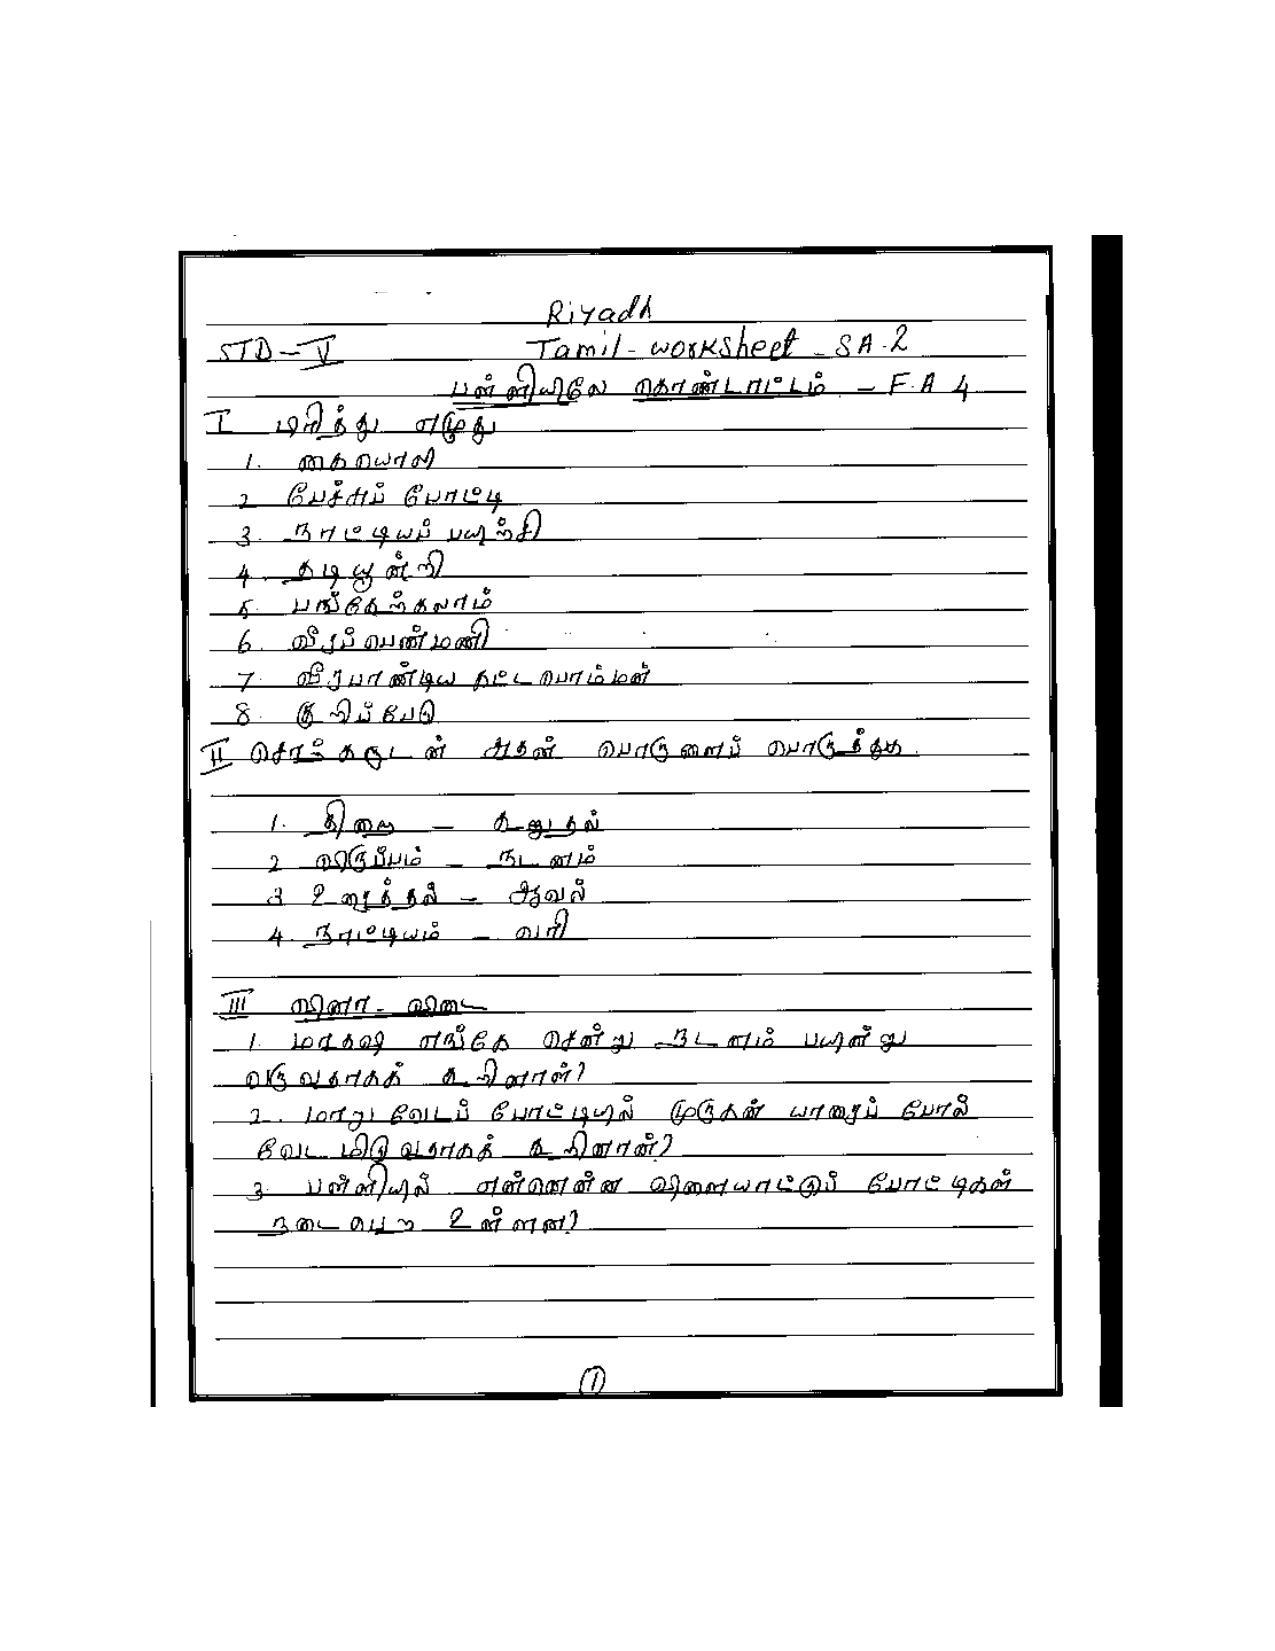 Riyadh
STD - V Tamil - worksheet - SA.2
பள்ளியிலே கொண்டாட்டம் - F.A 4
I பிரித்து எழுது
1. கையொலி
2 பேச்சுப் போட்டி
3. நாட்டியப் பயிற்சி
4. தடியூன்றி
5. பங்கேற்கலாம்
6. வீரப்பெண்மணி
7. வீரபாண்டிய கட்டபொம்மன்
8. குறிப்பேடு
II சொற்களுடன் அதன் பொருளைப் பொருத்துக.
1. திசை - கூறுதல்
2 விருப்பம் - நடனம்
3 உரைத்தல் - ஆவல்
4. நாட்டியம் - வழி
III வினா - விடை
1. மாதவி எங்கே சென்று நடனம் பயின்று
வருவதாகக் கூறினாள்?
2. மாறு வேடப் போட்டியில் முருகன் யாரைப் போல்
வேடமிடுவதாகக் கூறினான்?
3. பள்ளியில் என்னென்ன விளையாட்டுப் போட்டிகள்
நடைபெற உள்ளன?
1